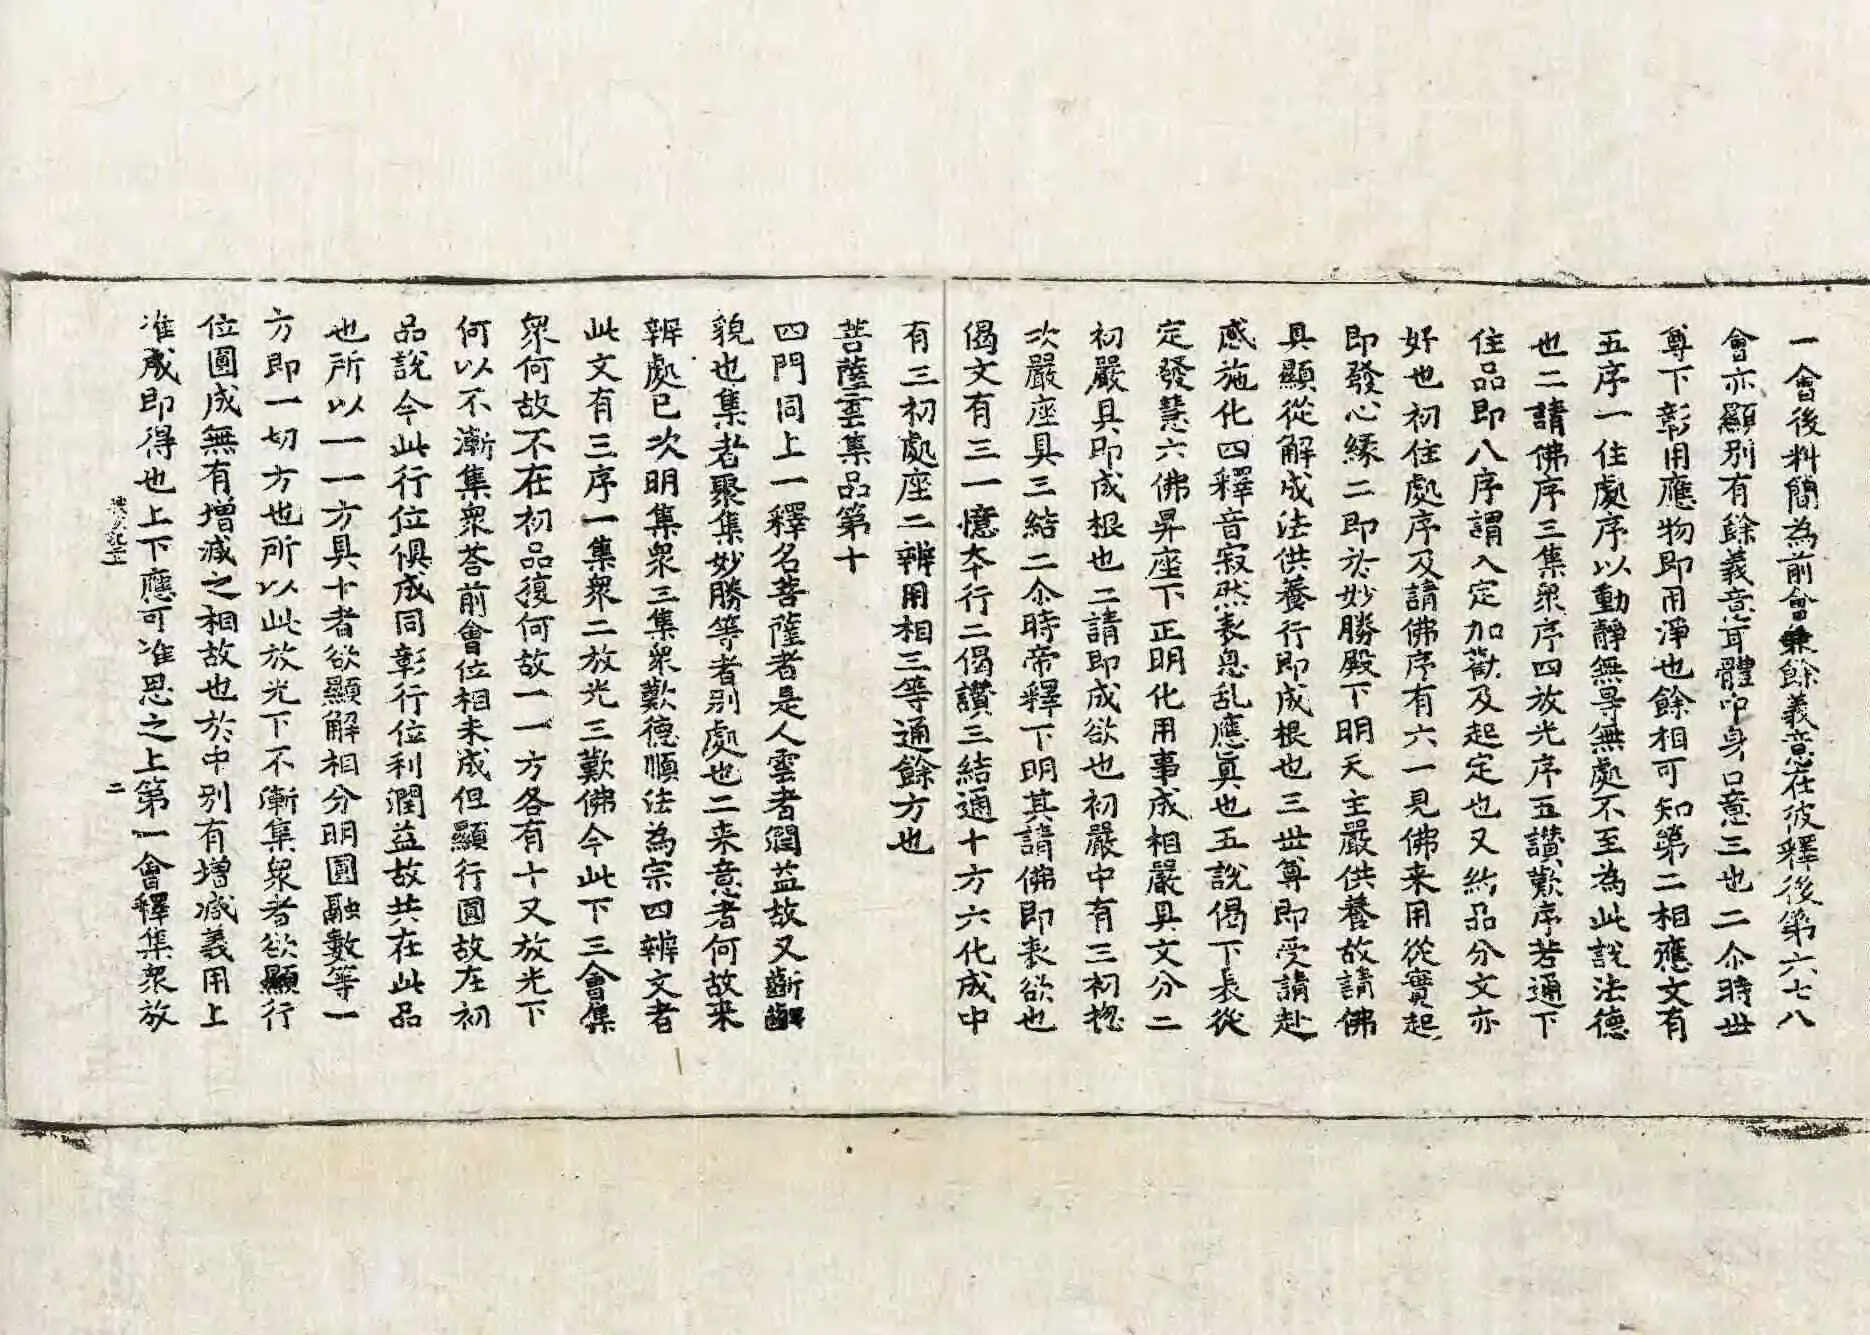 一會後料簡為前會兼餘義意在彼釋後第六七八
會亦顯別有餘義意耳體即身口意三也二尒時世
尊下彰用應物即用淨也餘相可知第二相應文有
五序一住處序以動靜無㝵無處不至為此說法德
也二請佛序三集眾序四放光序五讃歎序若通下
住品即八序謂入定加勸及起定也又約品分文亦
好也初住處序及請佛序有六一見佛来用從實起
即發心緣二即於妙勝殿下明天主嚴供養故請佛
具顯從解成法供養行即成根也三世尊即受請赴
感施化四釋音寂然表息乱應真也五說偈下表從
定發慧六佛昇座下正明化用事成相嚴具文分二
初嚴具即成根也二請即成欲也初嚴中有三初揔
次嚴座具三結二尒時帝釋下明其請佛即表欲也
偈文有三一憶本行二偈讃三結通十方六化成中
有三初處座二辨用相三等通餘方也
菩薩雲集品第十
四門同上一釋名菩薩者是人雲者潤益故又齗齵
貌也集者聚集妙勝等者別處也二来意者何故来
辨處已次明集眾三集眾歎德順法為宗四辨文者
此文有三序一集眾二放光三歎佛今此下三會集
眾何故不在初品復何故一一方各有十又放光下
何以不漸集眾荅前會位相未成但顯行圓故在初
品說今此行位俱成同彰行位利潤益故共在此品
也所以一一方具十者欲顯解相分明圓融數等一
方即一切方也所以此放光下不漸集眾者欲顯行
位圓成無有增減之相故也於中別有增減義用上
准咸即得也上下應可准思之上第一會釋集眾放
二